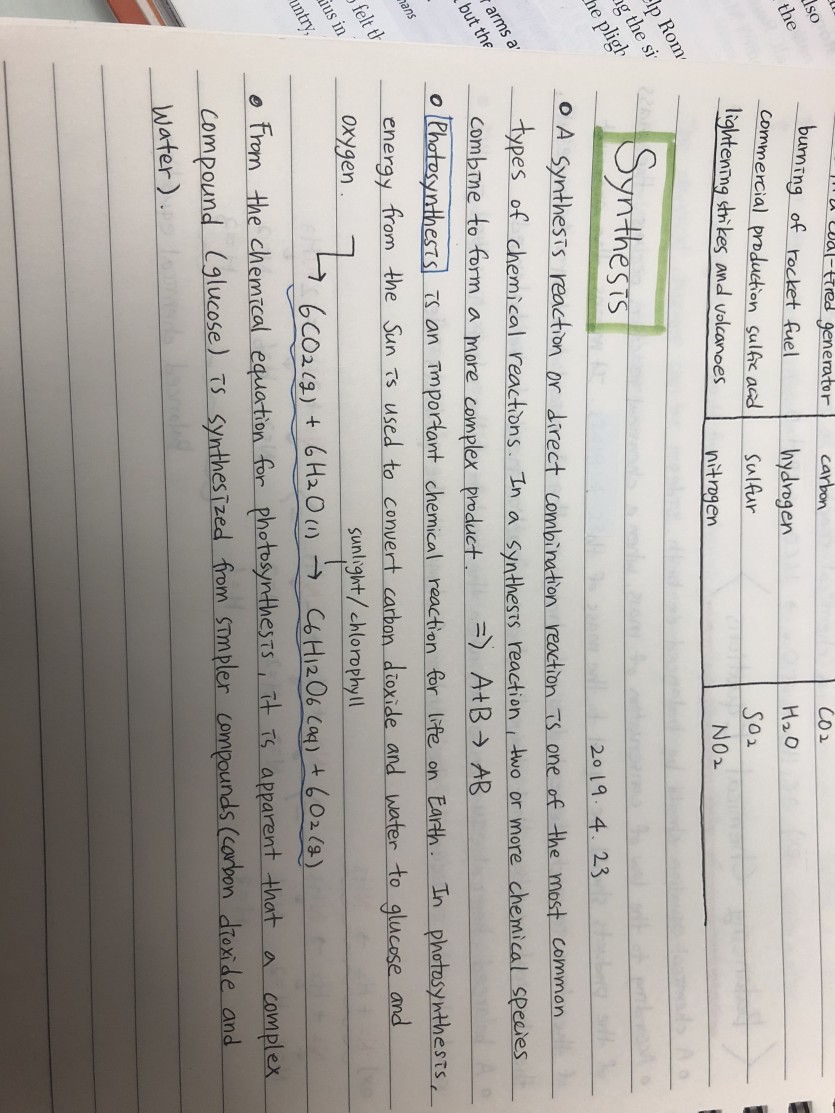 coal-fired generator carbon CO2
burning of rocket fuel hydrogen H2O
commercial production sulfic acid sulfur SO2
lightening strikes and volcanoes nitrogen NO2
Synthesis
2019. 4. 23
A synthesis reaction or direct combination reaction is one of the most common
types of chemical reactions. In a synthesis reaction, two or more chemical species
combine to form a more complex product. => A+B → AB
Photosynthesis is an important chemical reaction for life on Earth. In photosynthesis,
energy from the Sun is used to convert carbon dioxide and water to glucose and
oxygen.
sunlight/chlorophyll
→ 6CO2(g) + 6H2O(l) → C6H12O6(aq) + 6O2(g)
From the chemical equation for photosynthesis, it is apparent that a complex
compound (glucose) is synthesized from simpler compounds (carbon dioxide and
water).